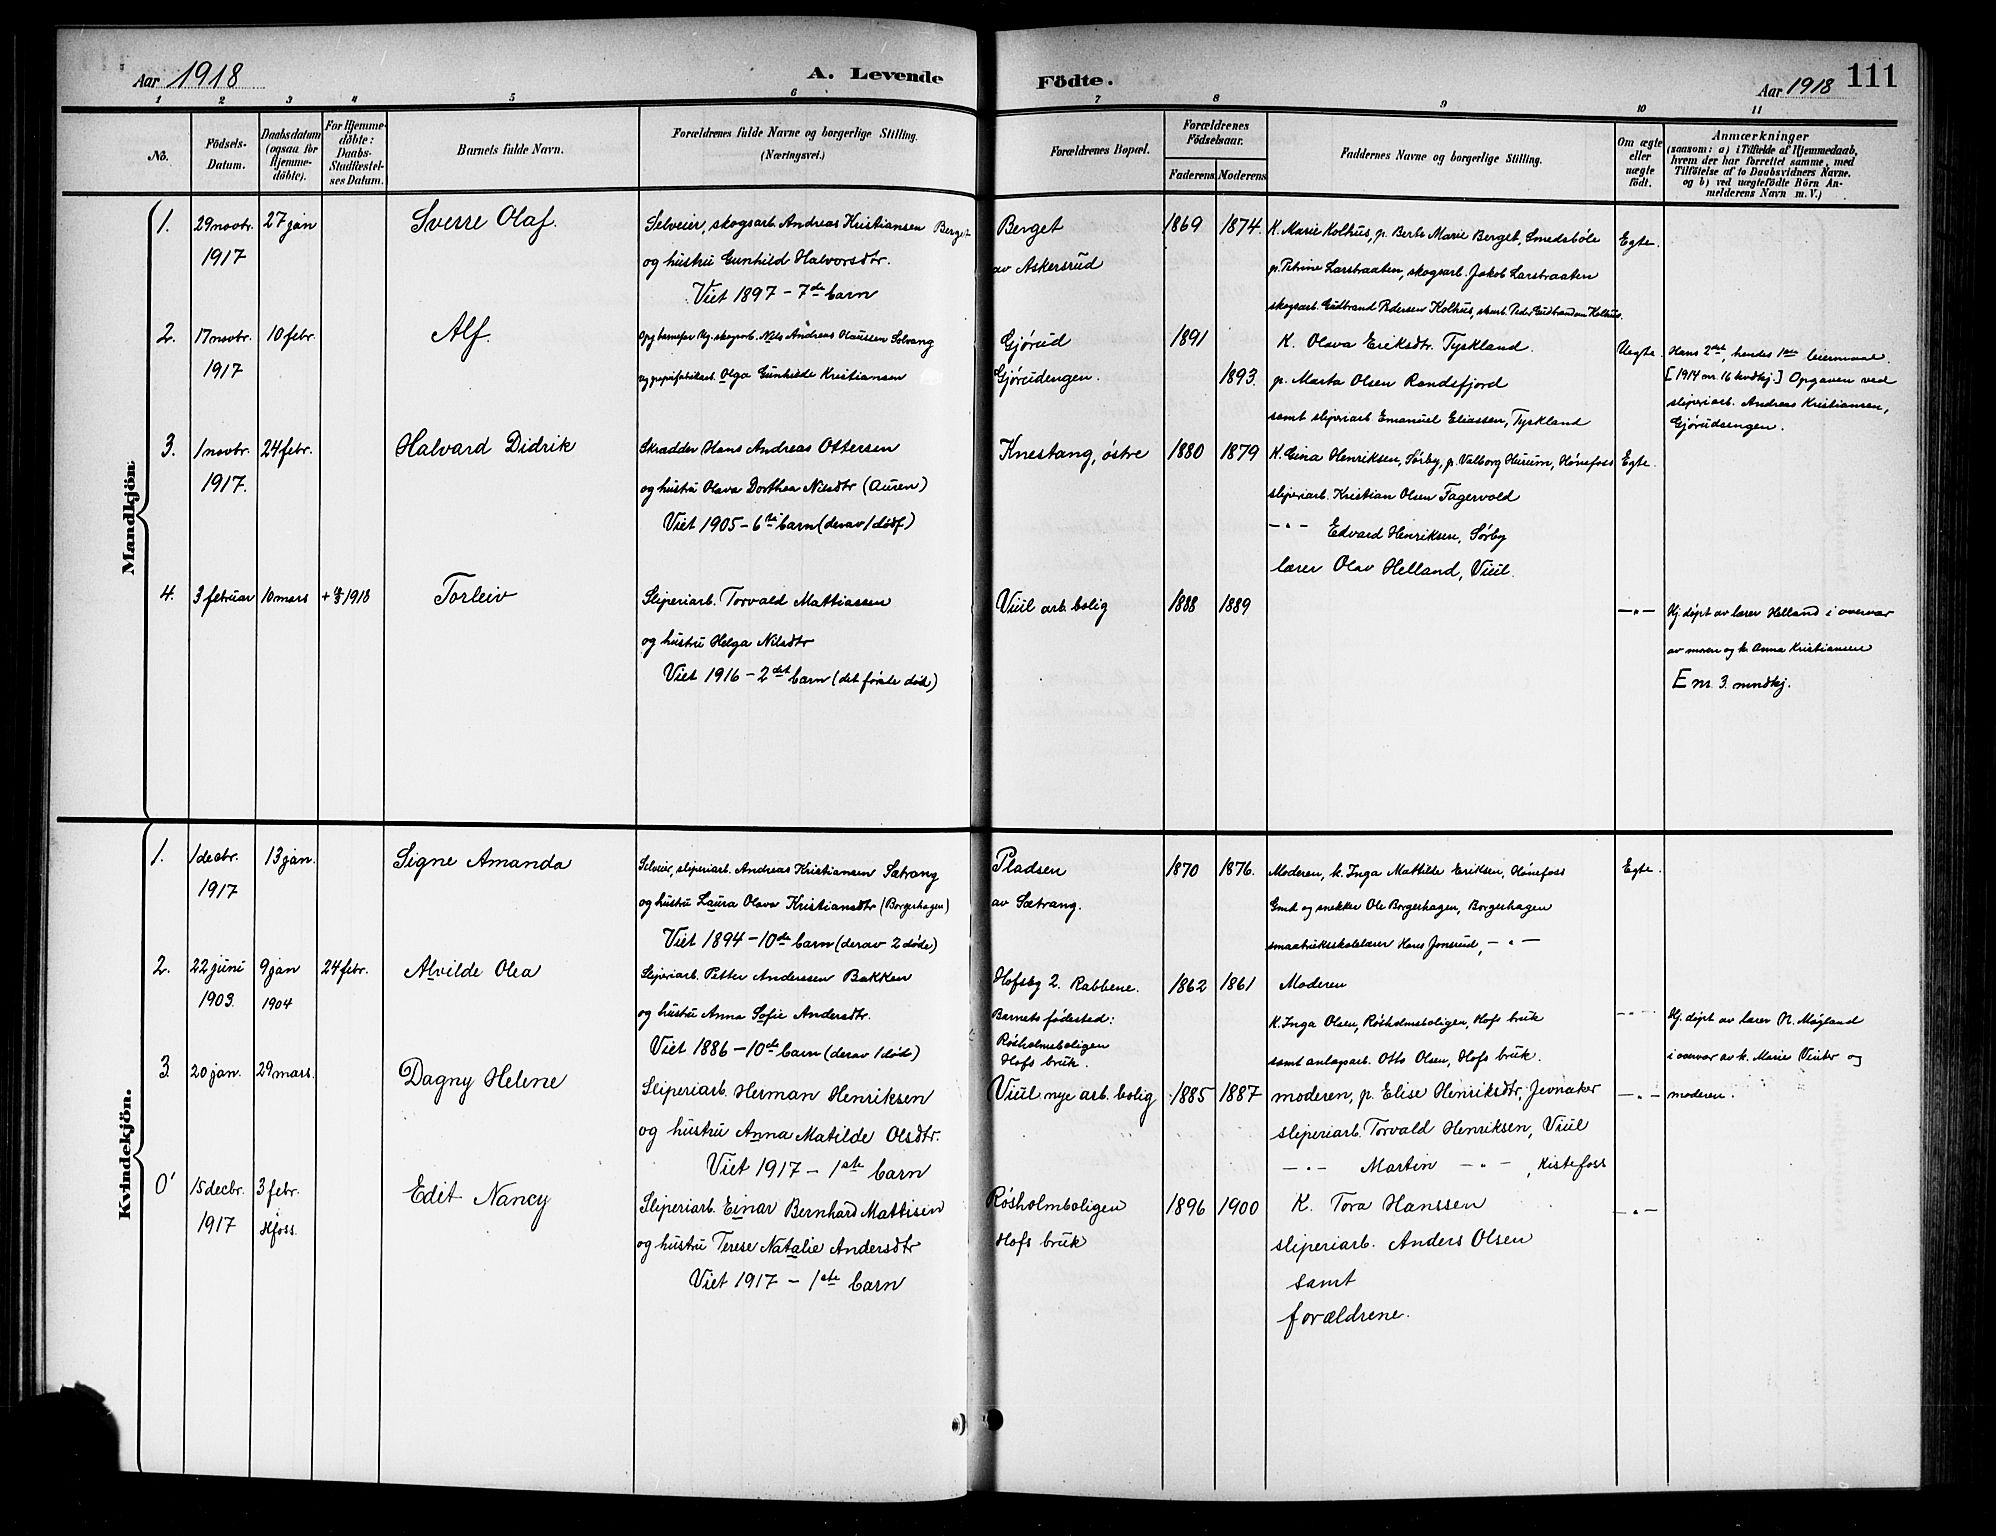 Aar 1918
A. Levende
Födte.
Aar 1918
111
1 2 3 4 5 6 7 8 9 10 11
No.
Födsels-
Datum.
Daabsdatum
(ogsaa for
Hjemme-
döbte).
For Hjemme-
döbte:
Daabs-
Stadfæstel-
ses Datum.
Barnets fulde Navn.
Forældrenes fulde Navne og borgerlige Stilling.
(Næringsvei.)
Forældrenes Bopæl.
Forældrenes
Födselsaar.
Faderens
Moderens
Faddernes Navne og borgerlige Stilling.
Om ægte
eller
uægte
födt.
Anmærkninger
(saasom: a) i Tilfælde af Hjemmedaab,
hvem der har forrettet samme, med
Tilföielse af to Daabsvidners Navne.
og b) ved uægtefödte Börn An-
melderens Navn m. V.)
Mandkjön.
1.
29 novbr.
1917
27 jan
Sverre Olaf.
Selveier, skogsarb. Andreas Kristiansen Berget
og hustru Gunhild Halvorsdtr.
Viet 1897 - 7de barn
Berget
av Askersrud
1869
1874.
K. Marie Kolhus, p. Berte Marie Berget, Smedsbøle
p. Petrine Larsbraaten, skogsarb. Jakob Larsbraaten
skogsarb. Gudbrand Pedersen Kolhus, Peder Gudbrandsen Kolhus.
Egte.
2.
17 novbr.
1917
10 febr.
Alf.
Opg barnefar Ug. skogsarb. Nils Andreas Olaussen Solvang
Ug papirfabrikarb. Olga Gunhilde Kristiansen
Gjørud
Gjørudengen.
1891
1893.
K. Olava Eriksdtr. Tyskland.
p. Marta Olsen Randsfjord
samt sliperiarb Emanuel Eliassen, Tyskland
Uegte.
Hans 2det, hendes 1ste leiermaal.
[1914 nr. 16 kvdkj.] Opgaven ved
sliperiarb. Andreas Kristiansen,
Gjørudsengen.
3.
1 novbr.
1917.
24 febr.
Halvard Didrik
Skrædder Hans Andreas Ottersen
og hustru Olava Dorthea Nilsdtr (Auren)
Viet 1905 - 6te barn (derav 1 dødf)
Knestang, østre
1880
1879
K. Gina Henriksen, Sørby, p. Valborg Hurum, Hønefoss
sliperiarb. Kristian Olsen Fagervold
-"- Edvard Henriksen, Sørby
lærer Olav Helland, Viul.
Egte.
4.
3 februar
10 mars
Torleiv
Sliperiarb. Torvald Mattiassen
og hustru Helga Nilsdtr
Viet 1916 - 2det barn (det første død)
Viul arb. bolig
1888
1889
-"-
Hj. døpt av lærer Helland i overvær
av moren og k. Anna Kristiansen
E nr. 3. mndkj.
Kvindekjön.
1.
1 decbr.
1917
13 jan.
Signe Amanda
Selveier, sliperiarb. Andreas Kristiansen Sætrang
og hustru Laura Olava Kristiansdtr (Borgerhagen)
Viet 1894 - 10de barn (derav 2 døde)
Pladsen
av Sætrang.
1870
1876.
Moderen, k. Inga Mathilde Eriksen, Hønefoss
Gmd og snekker Ole Borgerhagen, Borgerhagen
smaabruksskolelærer Hans Jonsrud, -"-
Egte.
2.
22 juni
1903.
9 jan
1904
24 febr.
Alvilde Olea
Sliperiarb. Petter Anderssen Bakken
og hustru Anna Sofie Andersdtr.
Viet 1886 - 10de barn (derav 1 død)
Hofsby 2. Rabbene.
Barnets fødested:
Røsholmboligen
Hofs bruk.
1862
1861
Moderen
K. Inga Olsen, Røsholmboligen, Hofs bruk
samt anlægsarb. Otto Olsen, Hofs bruk.
-"-
Hj. døpt av lærer N. Møgland
i overvær av k. Marie Vinter og
moderen.
3
20 jan.
29 mars.
Dagny Helene
Sliperiarb. Herman Henriksen
og hustru Anna Matilde Olsdtr.
Viet 1917 - 1ste barn
Viul nye arb. bolig
1885
1887
moderen, p. Elise Henriksdtr, Jevnaker
sliperiarb. Torvald Henriksen, Viul
-"- Martin -"-, Kistefoss
-"-
0'
15 decbr.
1917
3 febr.
Hfoss.
Edit Nancy
Sliperiarb. Einar Bernhard Mattisen
og hustru Terese Natalie Andersdtr
Viet 1917 - 1ste barn
Røsholmboligen
Hofs bruk
1896
1900
K. Tora Hanssen
sliperiarb. Anders Olsen
samt
forældrene.
-"-